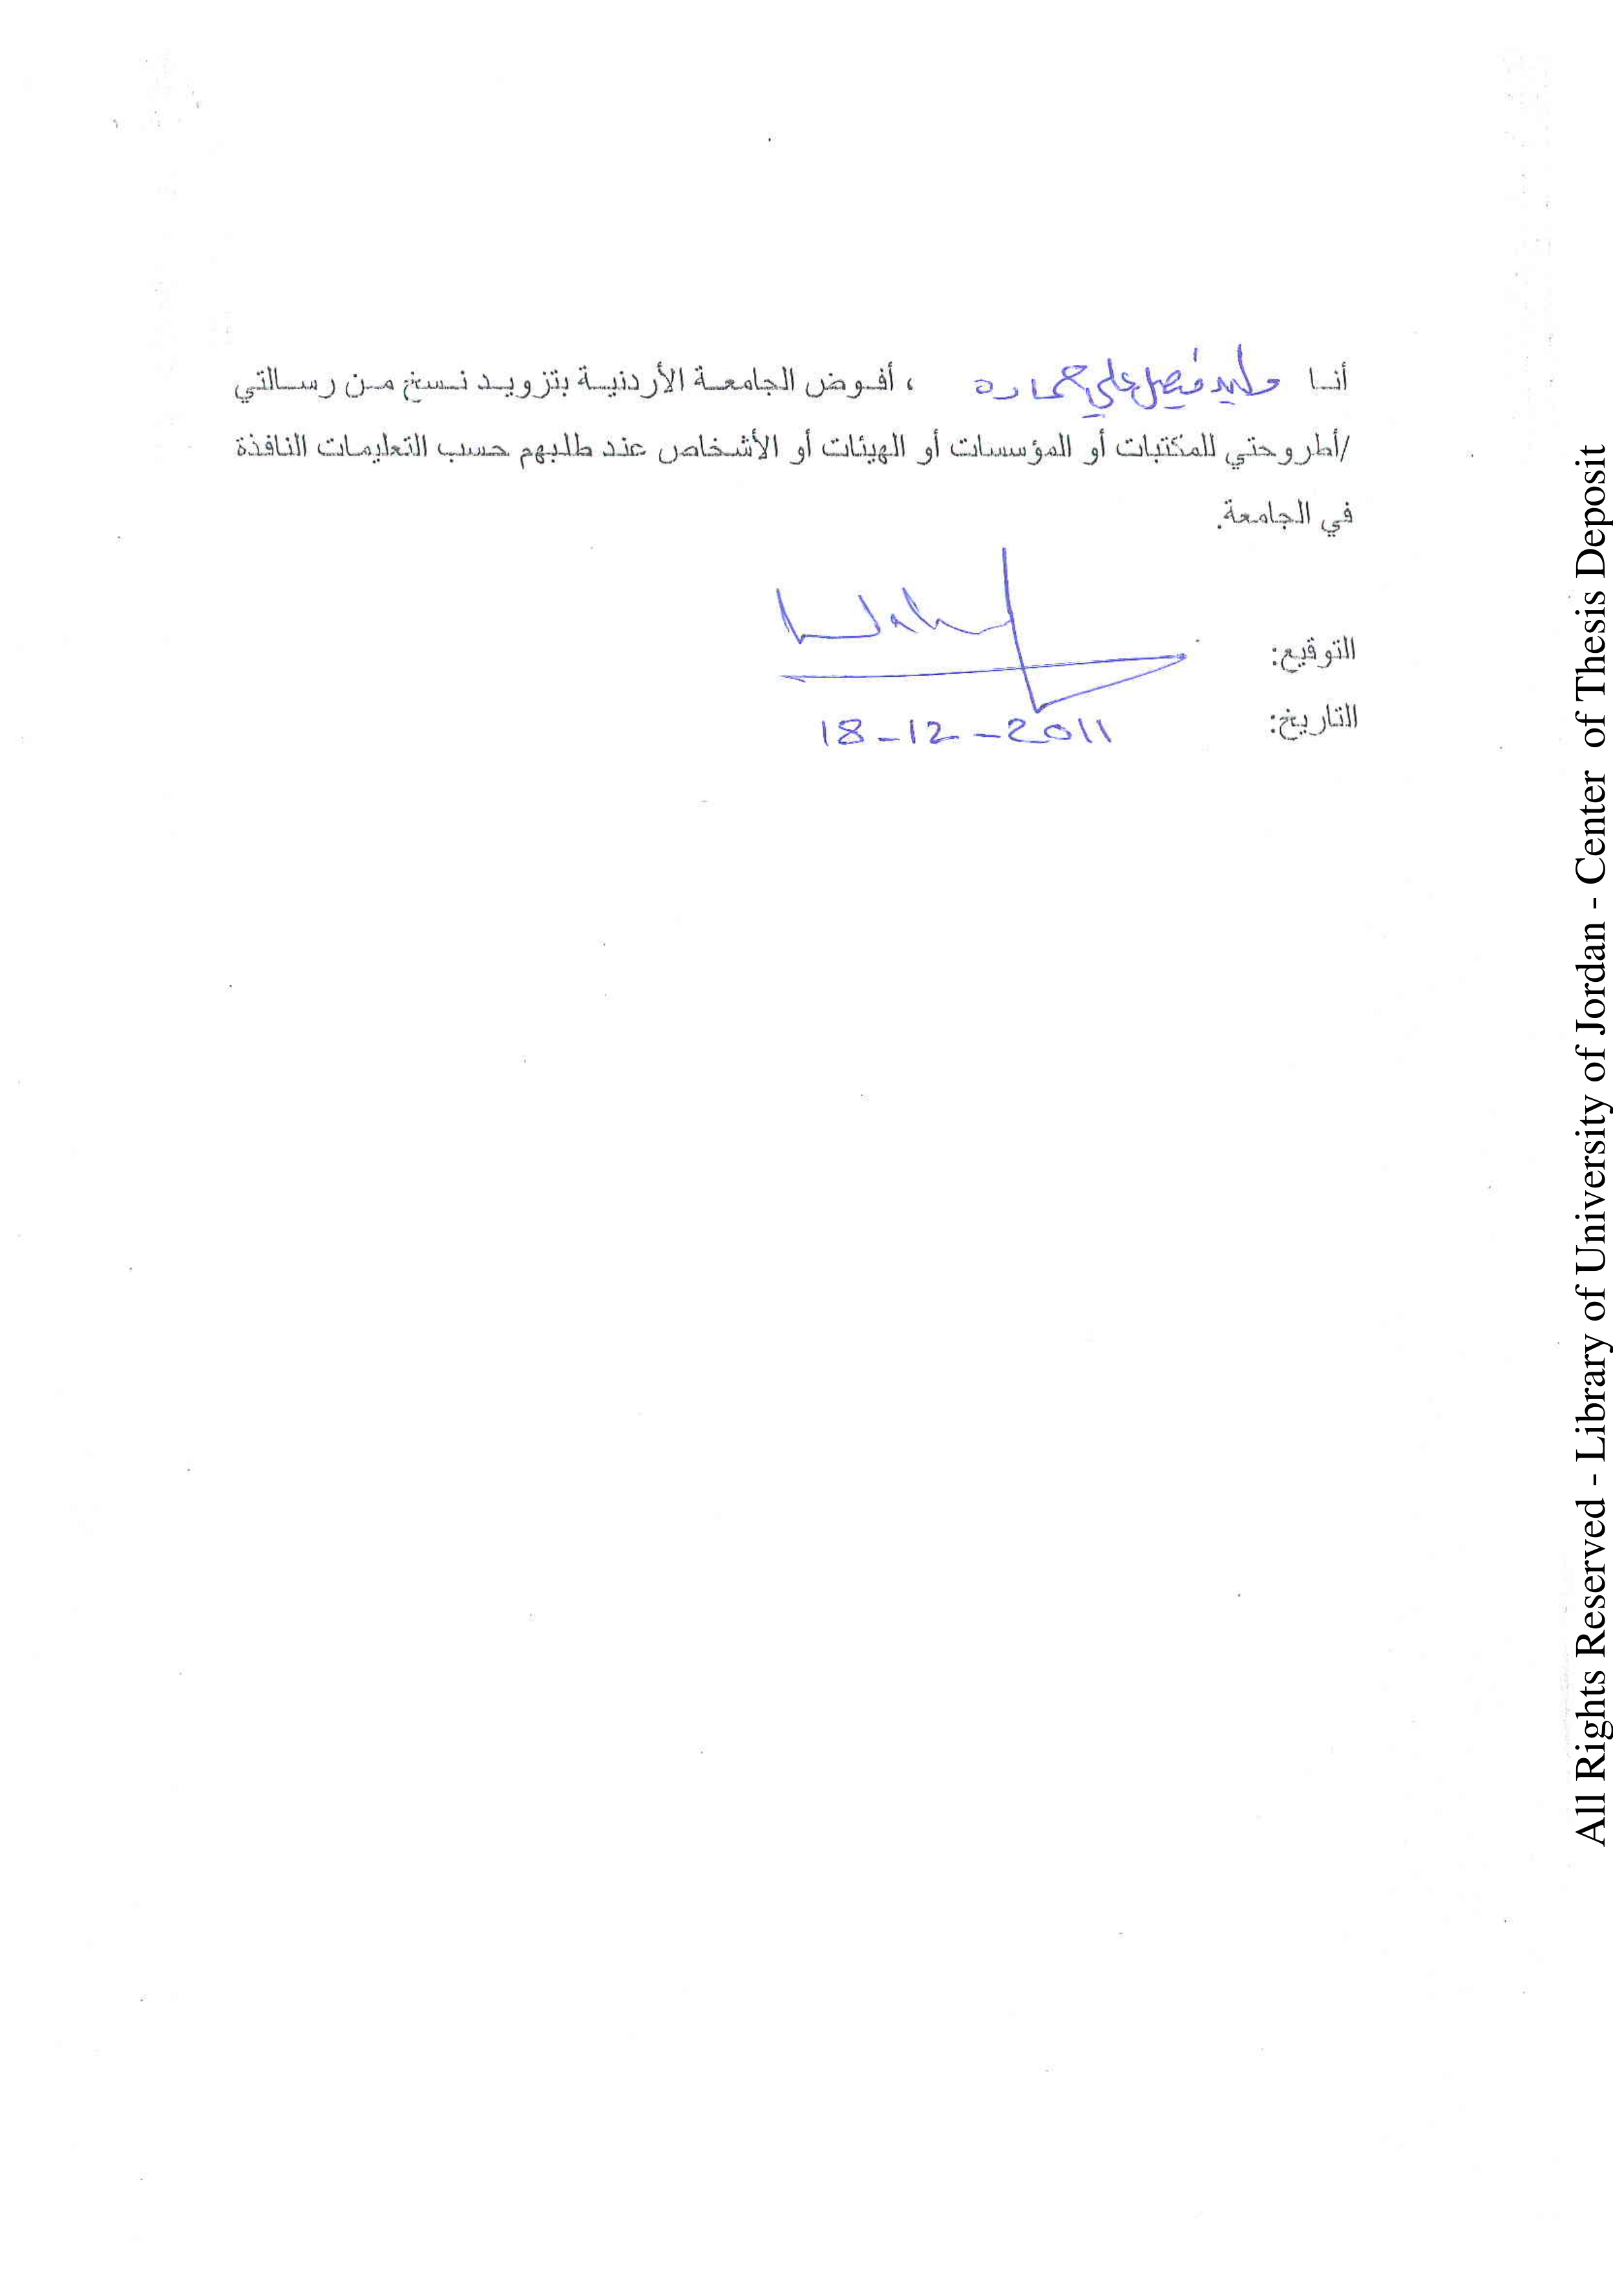 أنا وليد فيصل علي حماده ، أفوض الجامعة الأردنية بتزويد نسخ من رسالتي
/أطروحتي للمكتبات أو المؤسسات أو الهيئات أو الأشخاص عند طلبهم حسب التعليمات النافذة
في الجامعة.
التوقيع:
التاريخ: 18-12-2011
All Rights Reserved - Library of University of Jordan - Center of Thesis Deposit